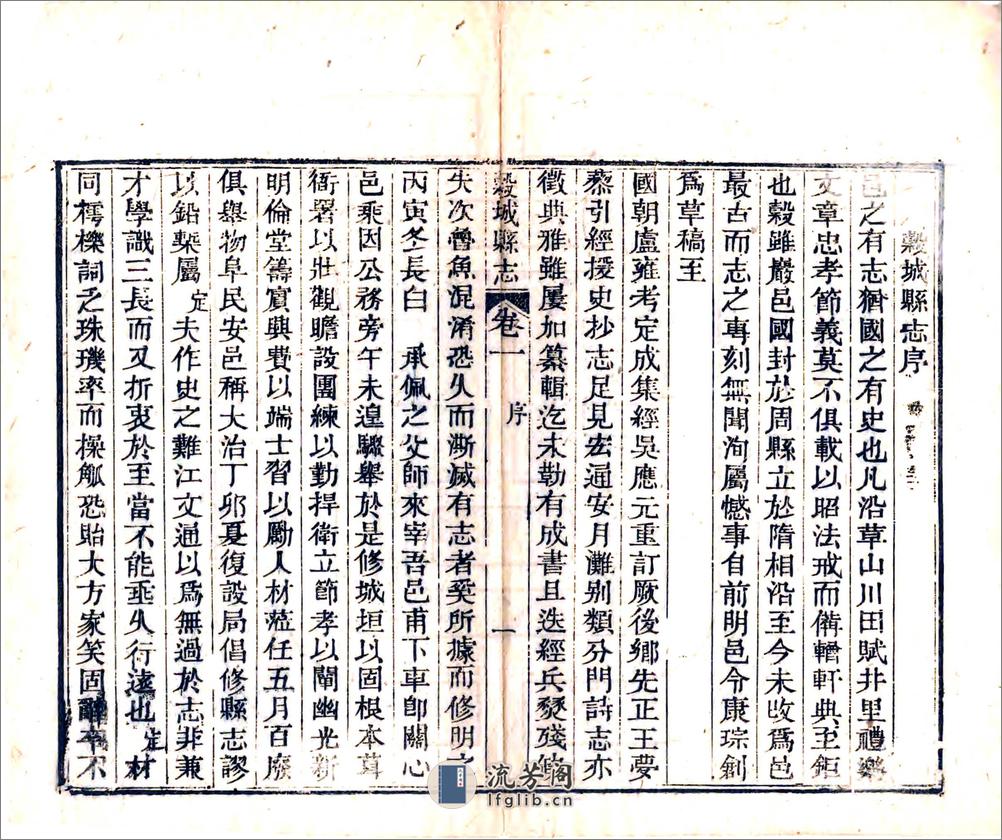 穀城縣志序
邑之有志猶國之有史也凡沿革山川田賦井里禮樂
文章忠孝節義莫不俱載以昭法戒而備輶軒典至鉅
也穀雖巖邑國封於周縣立於隋相沿至今未改為邑
最古而志之專刻無聞洵屬憾事自前明邑令康琮創
為草稿至
國朝盧雍考定成集經吳應元重訂厥後鄉先正王夢
蔡引經援史抄志足見宏通安月灘別類分門詩志亦
徵典雅雖屢加纂輯迄未勒有成書且迭經兵燹殘
穀城縣志 卷一 序 一
失次魯魚混淆恐久而澌滅有志者奚所據而修明之
丙寅冬長白 承佩之父師來宰吾邑甫下車即關心
邑乘因公務旁午未遑驟舉於是修城垣以固根本葺
衙署以壯觀瞻設團練以勤捍衛立節孝以闡幽光新
明倫堂籌賓興費以端士習以勵人材蒞任五月百廢
俱舉物阜民安邑稱大治丁卯夏復設局倡修縣志謬
以鉛槧屬定夫作史之難江文通以為無過於志非兼
才學識三長而又折衷於至當不能垂久行遠也定材
同樗櫟詞乏珠璣率而操觚恐貽大方家笑固辭卒不
流芳阁
lfglib.cn